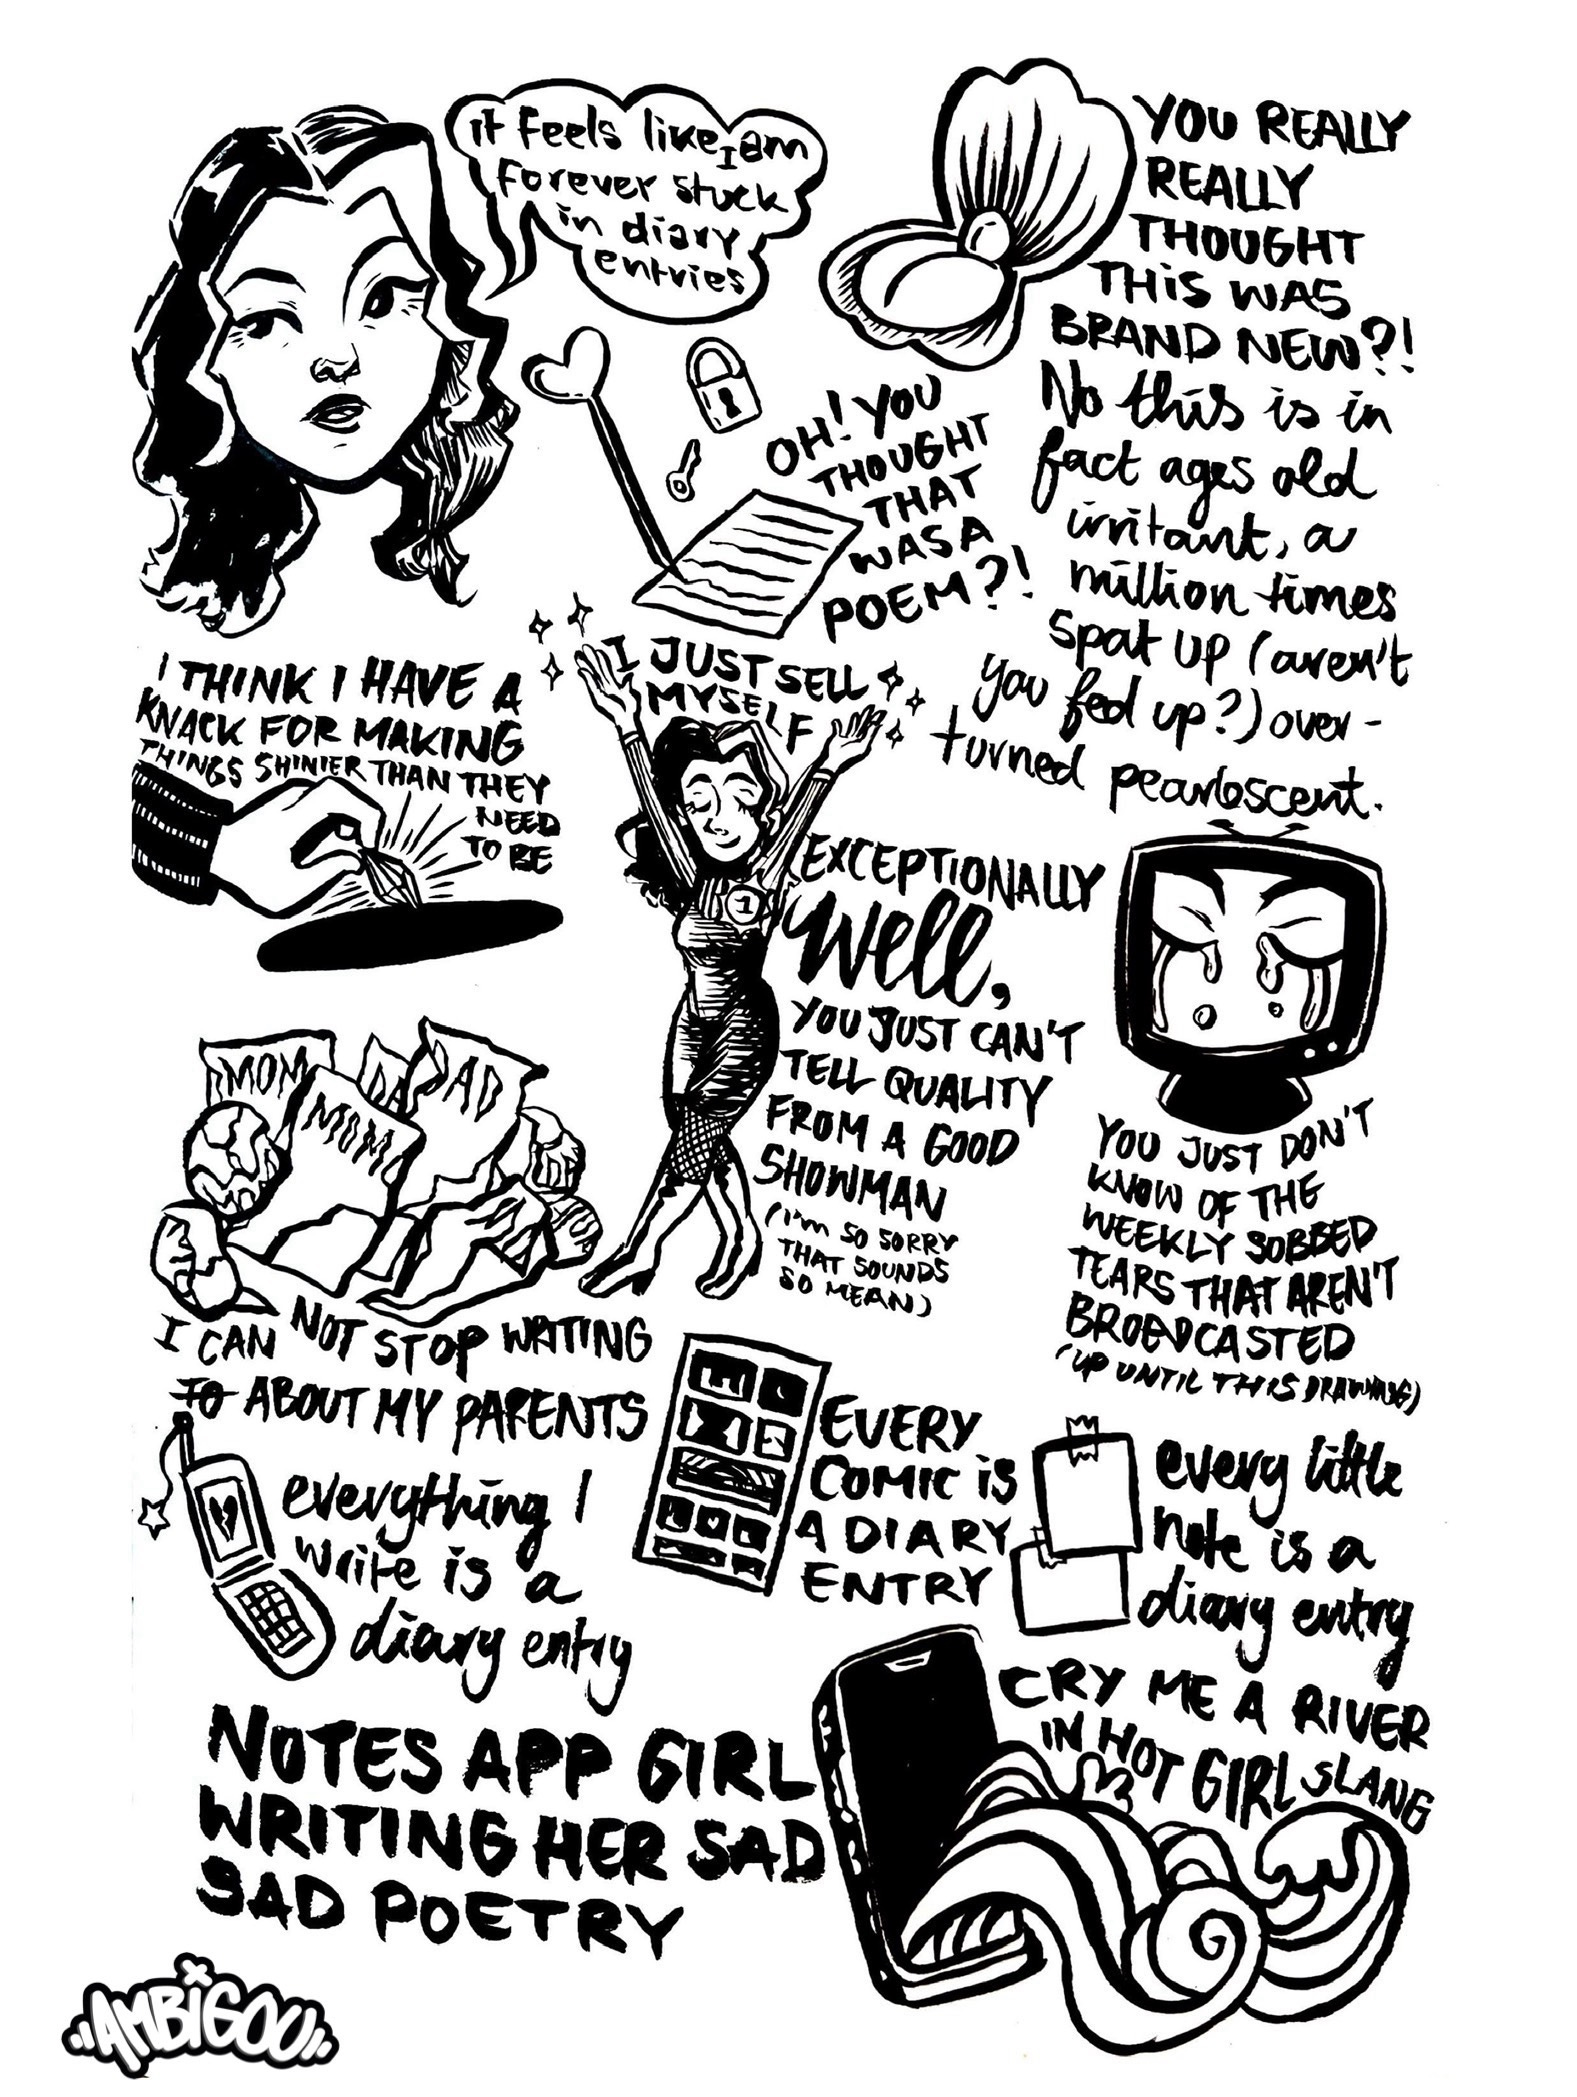 it feels like I am
forever stuck
in diary
entries
OH! YOU
THOUGHT
THAT
WAS A
POEM?!
YOU REALLY
REALLY
THOUGHT
THIS WAS
BRAND NEW?!
No this is in
fact ages old
irritant, a
million times
spat up (aren't
you fed up?) over-
turned pearlescent.
I THINK I HAVE A
KNACK FOR MAKING
THINGS SHINIER THAN THEY
NEED
TO BE
I JUST SELL
MYSELF
1
EXCEPTIONALLY
Well,
YOU JUST CAN'T
TELL QUALITY
FROM A GOOD
SHOWMAN
(I'M SO SORRY
THAT SOUNDS
SO MEAN)
YOU JUST DON'T
KNOW OF THE
WEEKLY SOBBED
TEARS THAT AREN'T
BROADCASTED
(UP UNTIL THIS DRAWING)
MOM
MOM
DA
DAD
I CAN NOT STOP WRITING
TO ABOUT MY PARENTS
everything I
write is a
diary entry
EVERY
COMIC is
A DIARY
ENTRY
every little
note is a
diary entry
NOTES APP GIRL
WRITING HER SAD
SAD POETRY
CRY ME A RIVER
IN HOT GIRL SLANG
AMBIGOU